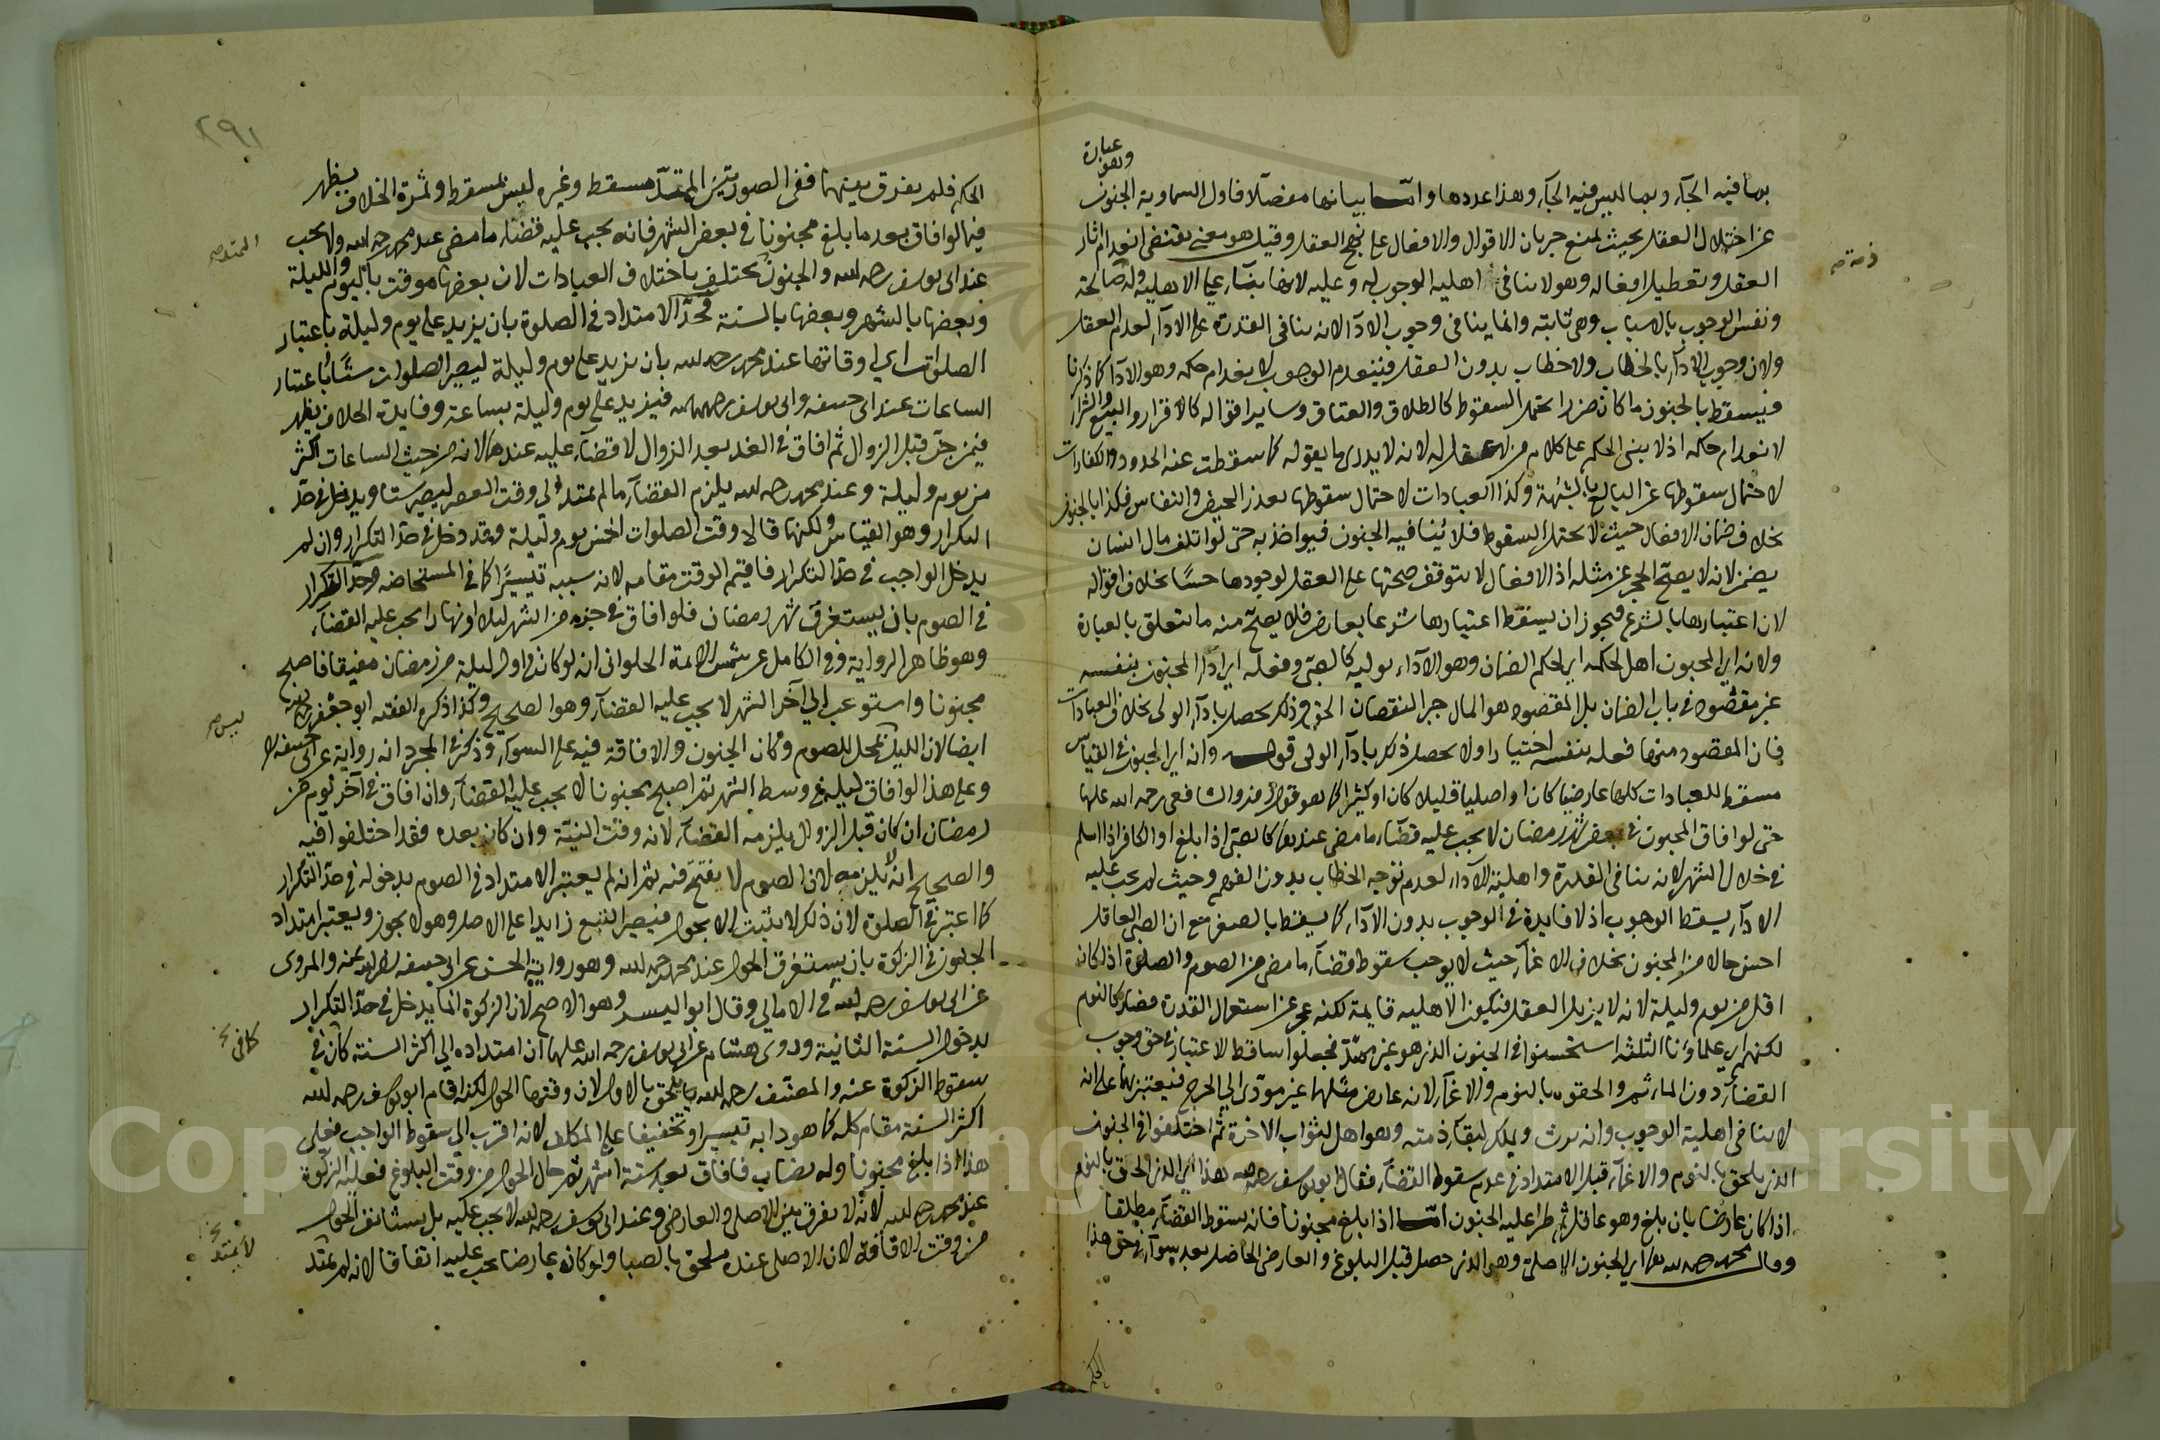 وهو عبارة
بها فيه الجآء وبها ليس فيه الجآء وهذا عددها واما بيانها مفصلا فاول السماوية الجنون
عن اختلال العقل بحيث يمنع جريان الاقوال والافعال على نهج العقل وقيل هو معنى يقتضى انعدام اثار
العقل وتعطيل افعاله وهو لا ينافى اهلية الوجوب له وعليه لانها ببقاء على الاهلية وله صالحة
ونفس الوجوب بالاسباب وهى ثابتة وانما ينافى وجوب الادآء لانه ينافى القدرة على الادآء لعدم العقل
ولان وجوب الادآء بالخطاب ولا خطاب بدون العقل فينعدم الوجوب لانعدام حكمه وهو الادآء كما ذكرنا
فيسقط بالجنون ما كان ضررا يحتمل السقوط كالطلاق والعتاق وسائر اقواله كالاقرار والبيع والشرآء
لانعدام حكمه اذ لا يبنى الحكم على كلام من لا عقل له لانه لا يدرى ما يقوله كما سقطت عنه الحدود والكفارات
لاحتمال سقوطها عن البالغ بالشبهة وكذا العبادات لاحتمال سقوطها بعذر الحيض والنفاس فكذا بالجنون
بخلاف ضمان الافعال حيث لا يحتمل السقوط فلا ينافيه الجنون فيواخذ به حتى لو اتلف مال انسان
يضمن لانه لا يصح الحجر عن مثله اذ الافعال لا يتوقف صحتها على العقل لوجودها حسا بخلاف اقواله
لان اعتبارها بالشرع فيجوز ان يسقط اعتبارها شرعا بعارض فلا يصح منه ما يتعلق بالعبارة
ولانه اى المجنون اهل لحكمه اى لحكم الضمان وهو الادآء بوليه كالصبى وفعله اى ادآء المجنون بنفسه
غير مقصود فى باب الضمان بل المقصود هو المال جبر النقصان الحق وذلك يحصل بادآء الولى بخلاف العبادات
فان المقصود منها فعله بنفسه اختيارا ولا يحصل ذلك بادآء الولى قوله وانه اى الجنون فى القياس
مسقط للعبادات كلها عارضيا كان او اصليا قليلا كان او كثيرا كما هو قول زفر والشافعى رحمة الله عليهما
حتى لو افاق المجنون فى بعض شهر رمضان لا يجب عليه قضآء ما مضى عندهما كالصبى اذا بلغ او الكافر اذا اسلم
فى خلال الشهر لانه ينافى القدرة واهلية الادآء لعدم توجه الخطاب بدون الفهم وحيث لم يجب عليه
الادآء يسقط الوجوب اذ لا فايدة فى الوجوب بدون الادآء كما يسقط بالصغر مع ان الصبى العاقل
احسن حالا من المجنون بخلاف الاغمآء حيث لا يوجب سقوط قضآء ما مضى من الصوم والصلوة اذا كان
اقل من يوم وليلة لانه لا يزيل العقل فيكون الاهلية قايمة لكنه عجز عن استعمال القدرة فصار كالنوم
لكنهم اى علماؤنا الثلثة استحسنوا فى الجنون الذى هو غير ممتد فجعلوا ساقط الاعتبار فى حق وجوب
القضآء دون المأثم والحقوه بالنوم والاغمآء لانه عارض مثلهما غير مؤد الى الحرج فيعتبر بهما على انه
لا ينافى اهلية الوجوب وانه يرث ويملك لبقآء ذمته وهو اهل لثواب الاخرة ثم اختلفوا فى الجنون
الذى يلحق بالنوم والاغمآء قبل الامتداد فى عدم سقوط القضآء فقال ابو يوسف رحمه الله هذا اى الذى الحق بالنوم
اذا كان عارضا بان بلغ وهو عاقل ثم طرا عليه الجنون اما اذا بلغ مجنونا فانه يسقط القضآء مطلقا
وقال محمد رحمه الله هما اى الجنون الاصلى وهو الذى حصل قبل البلوغ والعارض الحاصل بعد سوآء فى حق هذا
الحكم
ذمته صح
٢٩١
الحكم فلم يفرق بينهما ففى الصورتين الممتد مسقط وغيره ليس بمسقط وثمرة الخلاف يظهر
فيما لو افاق بعد ما بلغ مجنونا فى بعض الشهر فانه يجب عليه قضآء ما مضى عند محمد رحمه الله ولا يجب
عند ابى يوسف رحمه الله والجنون يختلف باختلاف العبادات لان بعضها موقت باليوم والليلة
وبعضها بالشهر وبعضها بالسنة فحد الامتداد فى الصلوة بان يزيد على يوم وليلة باعتبار
الصلوات اى اوقاتها عند محمد رحمه الله بان يزيد على يوم وليلة ليصير الصلوات ستا باعتبار
الساعات عند ابى حنيفة وابى يوسف رحمهما الله فيزيد على يوم وليلة بساعة وفايدة الخلاف يظهر
فيمن جن قبل الزوال ثم افاق فى الغد بعد الزوال لا قضآء عليه عندهما لانه من حيث الساعات اكثر
من يوم وليلة وعند محمد رحمه الله يلزم القضآء ما لم يمتد الى وقت العصر ليصير ستا ويدخل فى حد
التكرار وهو القياس ولكنهما قالا وقت الصلوات الخمس يوم وليلة وقد دخل فى حد التكرار وان لم
يدخل الواجب فى حد التكرار فاقيم الوقت مقامه لانه سببه تيسيرا كما فى المستحاضة وحد التكرار
فى الصوم بان يستغرق شهر رمضان فلو افاق فى جزء من الشهر ليلا او نهارا يجب عليه القضآء
وهو ظاهر الرواية وفى الكامل عن شمس الائمة الحلوانى انه لو كان فى اول ليلة من رمضان مفيقا فاصبح
مجنونا واستوعب الى آخر الشهر لا يجب عليه القضآء وهو الصحيح وكذا ذكره الفقيه ابو جعفر رحمه الله
ايضا لان الليل لا محل للصوم فكان الجنون والافاقة فيه على السوآء وذكر فى المجرد انه رواية عن ابى حنيفة
وعلى هذا لو افاق ليلة فى وسط الشهر ثم اصبح مجنونا لا يجب عليه القضآء وان افاق فى آخر يوم من
رمضان ان كان قبل الزوال يلزمه القضآء لانه وقت النية وان كان بعده فقد اختلفوا فيه
والصحيح انه لا يلزمه لان الصوم لا يفتتح فيه ثم انه لم يعتبر الامتداد فى الصوم بدخوله فى حد التكرار
كما اعتبر فى الصلوة لان ذلك لا يثبت الا بحول فيصير التبع زايدا على الاصل وهو لا يجوز ويعتبر امتداد
الجنون فى الزكوة بان يستغرق الحول عند محمد رحمه الله وهو رواية الحسن عن ابى حنيفة رضى الله عنه والمروى
عن ابى يوسف رحمه الله فى الامالى وقال ابو اليسر وهو الاصح لان الزكوة انما يدخل فى حد التكرار
بدخول السنة الثانية وروى هشام عن ابى يوسف رحمة الله عليهما ان امتداده الى اكثر السنة كان فى
سقوط الزكوة عنه والمصنف رحمه الله يلحق بالاول لان وقتها الحول لكنه اقام ابو يوسف رحمه الله
اكثر السنة مقام كله كما هو دابه تيسيرا وتخفيفا على المكلف لانه اقرب الى سقوط الواجب فعلى
هذا اذا بلغ مجنونا وله نصاب فافاق بعد ستة اشهر ثم حال الحول من وقت البلوغ فعليه الزكوة
عند محمد رحمه الله لانه لا يفرق بين الاصلى والعارض وعند ابى يوسف رحمه الله لا يجب عليه بل يستانف الحول
من وقت الافاقة لان الاصلى عنده ملحق بالصبا ولو كان عارضا يجب عليه اتفاقا لانه لم يمتد
الممتد صح
ليس صح
كاف
لا يمتد